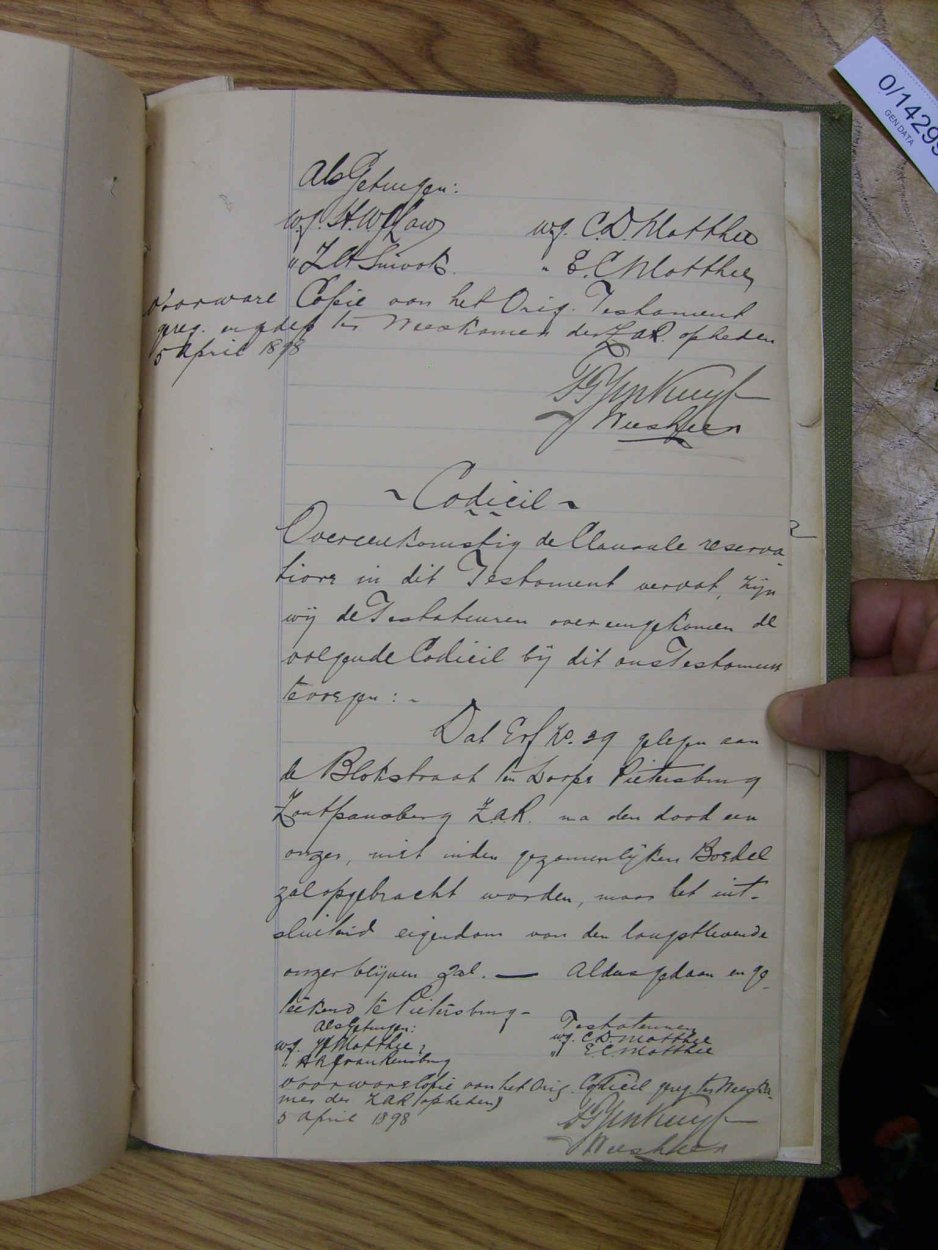 0/14299
GEN.DATA
Als Getuigen:
wg. H.W. wg. C.D. Matthee
" " E.C. Matthee
Voorware Copie van het Orig. Testament
gereg. en gedep ter Weeskamer der Z.A.R. opheden
5 April 1898
Weesheer
~ Codicil ~
Overeenkomstig de Clausule reserva-
tiore in dit Testament vervat, zijn
wij de Testateuren overeengekomen de
volgende Codicil bij dit ons Testament
te voegen: -
Dat Erf No. 39 gelegen aan
de Blokstraat ten Dorpe Pietersburg
Zoutpansberg Z.A.R. na den dood een
onzer, niet in den gezamenlijken Boedel
zal opgebracht worden, maar het uit-
sluitend eigendom van den langstlevende
onzer blijven zal. — Aldus gedaan en ge-
teekend te Pietersburg -
Als Getuigen: Testateuren
wg. Matthee, wg. C D Matthee
" Frankensburg " E C Matthee
Voorware Copie van het Orig. Codicil gereg ter Weeska-
mer der Z.A.R. opheden
5 April 1898
Weesheer